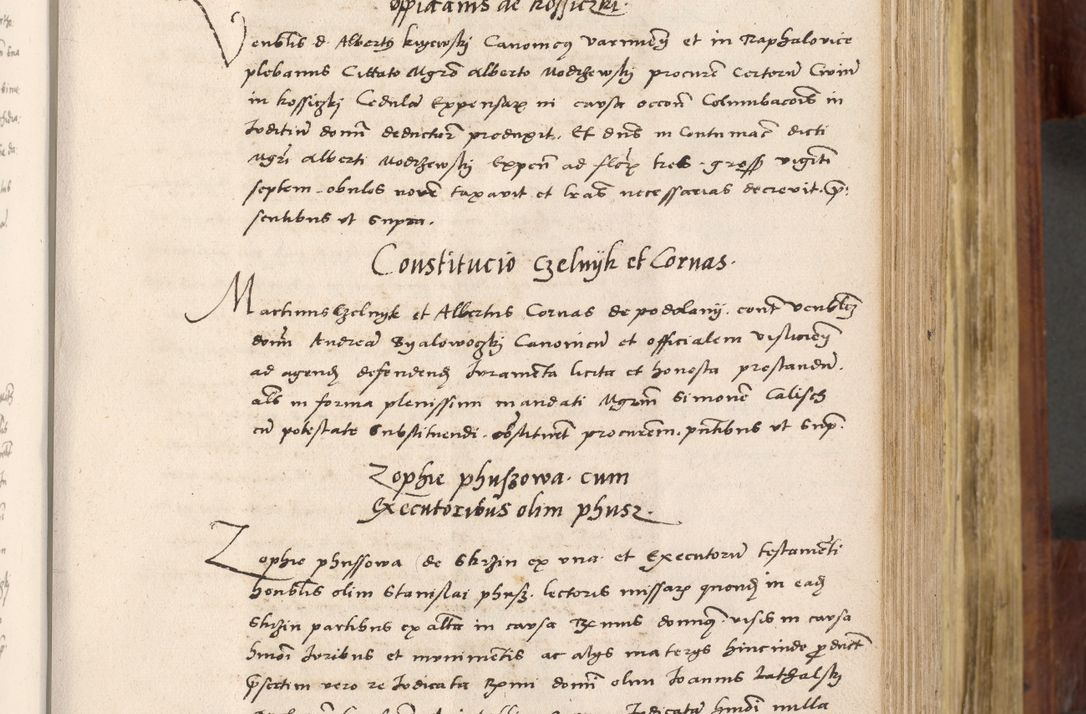 oppidanis de kossiczki.
Venblis d. Albertg kijewskj Canonicg varmien et in Raphalovice
plebanus Cittato Mgro Alberto Modzewskj procure certoru Civiu
in kossiczkj Cedula Expensar in causa occon Columbacois in
Juditiu domi deductor produxit. Et dns in contumac dicti
Mgri Alberti Modrzewskj Expen ad flor tres gross vigiti
septem obulos nove taxavit et lras necessarias decrevit. p̄:
sentibus ut supra.
Constitucio Czelnijk et Cornas.
Martinus Czelnijk et Albertus Cornas de podolanij. cont venblem
domi Andrea Byalowoczkj Canonicu et officialem vislicien
ad agend defendend Juramenta licita et honesta prestandu.
als in forma plenissimi mandati Mgrm Simone Calisch
cu potestate substituendi. costituut procurem. pntibus ut sup.
Zophie phuszowa. cum
Executoribus olim phusz.
Zophie phussowa de Skrzin ex una et Executoru testameti
honblis olim Stanislai phusz. lectoris missar quond in ead
Skrzin partibus ex alta in causa Rx nus donusq. visis in causa
hmoi Juribus et munimentis ac alys maters hincinde product
psertim vero re Judicata Rxmi domi olim Joannis Lathalskj